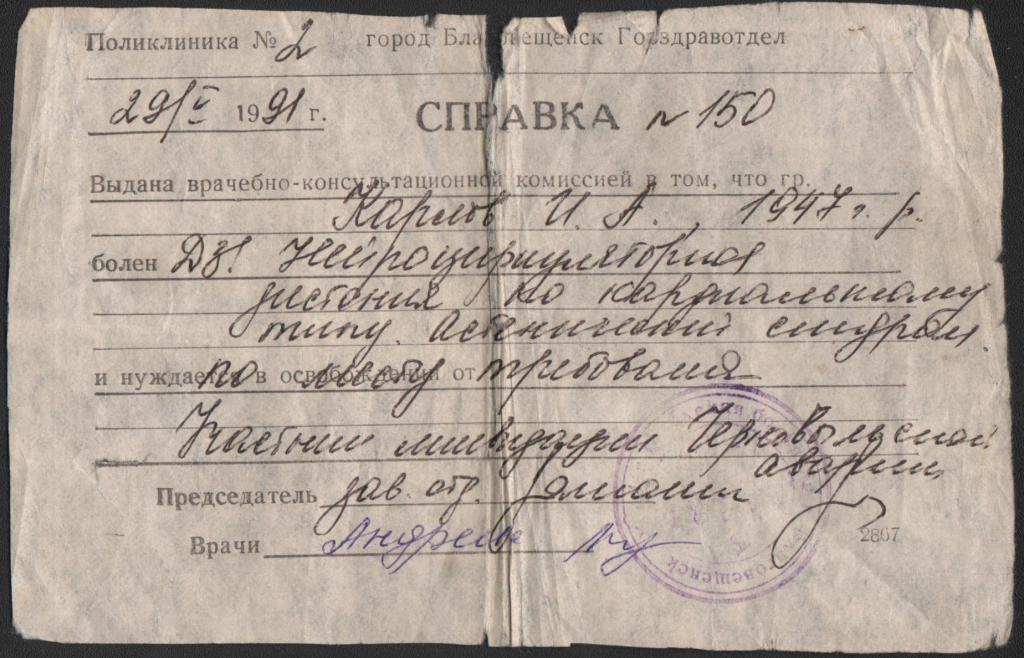 Поликлиника № 2 город Благовещенск Горздравотдел
29/V 1991 г. СПРАВКА № 150
Выдана врачебно-консультационной комиссией в том, что гр.
Карлов И. А., 1947 г. р.
болен Дз! Нейроциркуляторная
дистония по кардиальному
типу. Астенический синдром
и нуждается в освобождении от
по месту требования
Участник ликвидации Чернобыльской
аварии,
Председатель зав. отд.
Врачи Андреева
2867